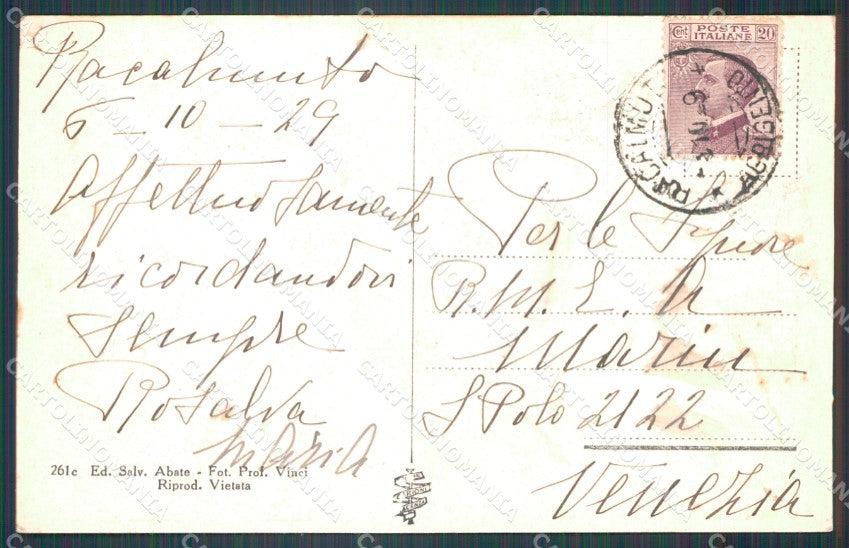 Racalmuto
6-10-29
Affettuosamente
ricordandovi
sempre
Rosalva
Maria
261c Ed. Salv. Abate - Fot. Prof. Vinci
Riprod. Vietata
Cent POSTE ITALIANE 20
RACALMUTO
Per le Signore
R. M. E. N
Marin
S Polo 2122
Venezia
CARTOLINOMANIA